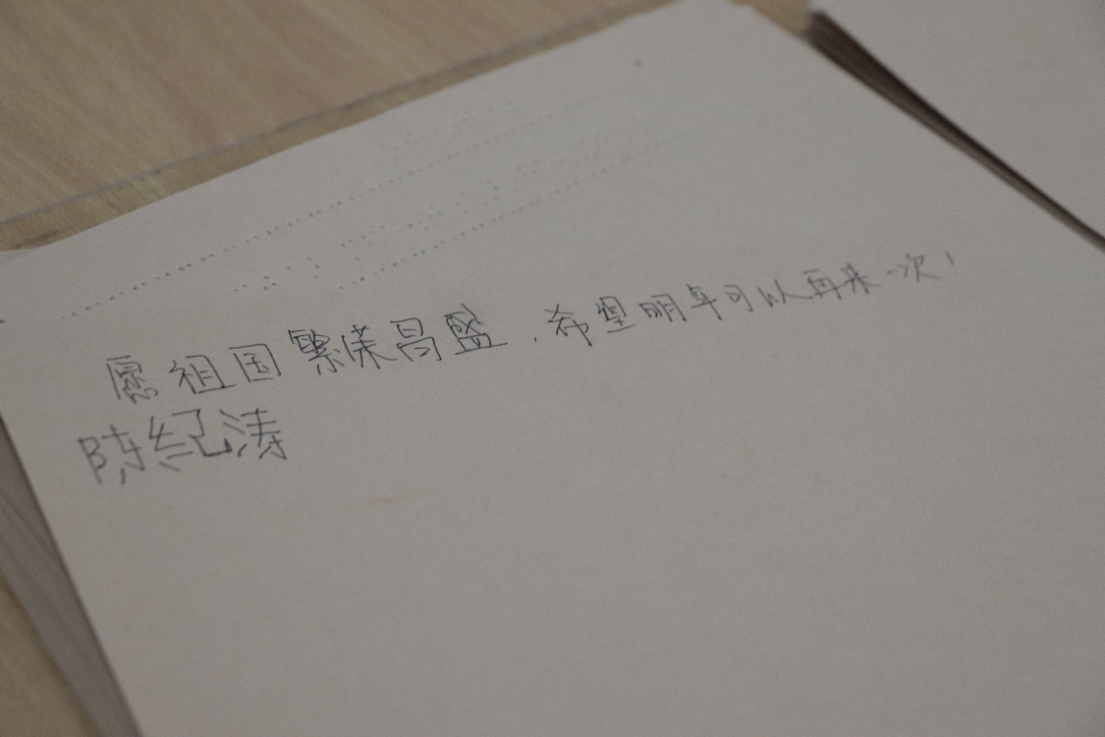 愿祖国繁荣昌盛，希望明年可以再来一次！
陈纪涛